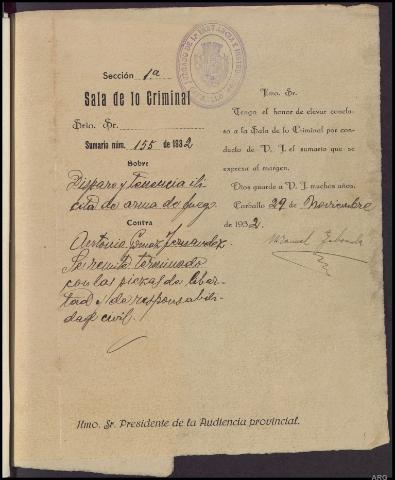 Sección 1ª
Sala de lo Criminal
Srio. Sr.
Sumario núm. 155 de 1932
Sobre
Disparo y tenencia ilí
cita de arma de fuego
Contra
Antonio Gomez Fernandez.
Se remite terminado
con las piezas de liber-
tad y de responsabili-
dad civil.
JUZGADO DE 1ª INSTANCIA E INSTRUCCION
Ilmo. Sr.
Tengo el honor de elevar conclu-
so a la Sala de lo Criminal por con-
ducto de V. I. el sumario que se
expresa al margen.
Dios guarde a V. I. muchos años.
Carballo 29 de Noviembre
de 1932.
Manuel
Ilmo. Sr. Presidente de la Audiencia provincial.
ARG